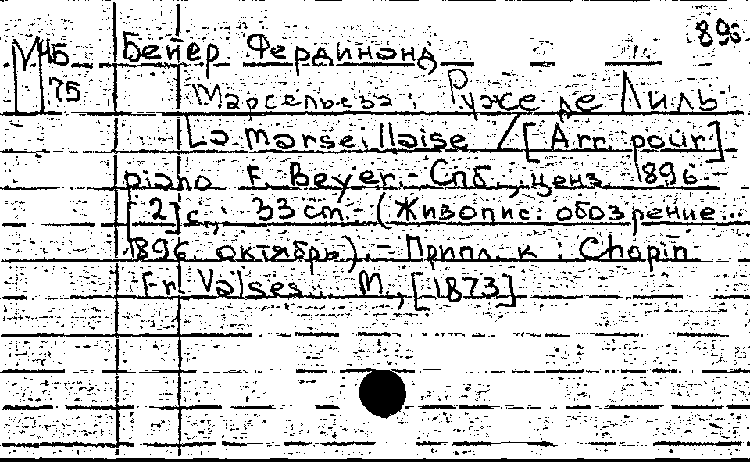 896
М46 Бейер Фердинанд,
Ц75 Марсельеза: Руже де Лиль
La Marseillaise / [Arr. pour]
piano F. Beyer. - Спб., ценз. 1896.
[2] с.; 33 cm. - (Живопис. обозрение...
1896 октябрь). - Припл. к: Chopin
Fr. Valses... М., [1873]